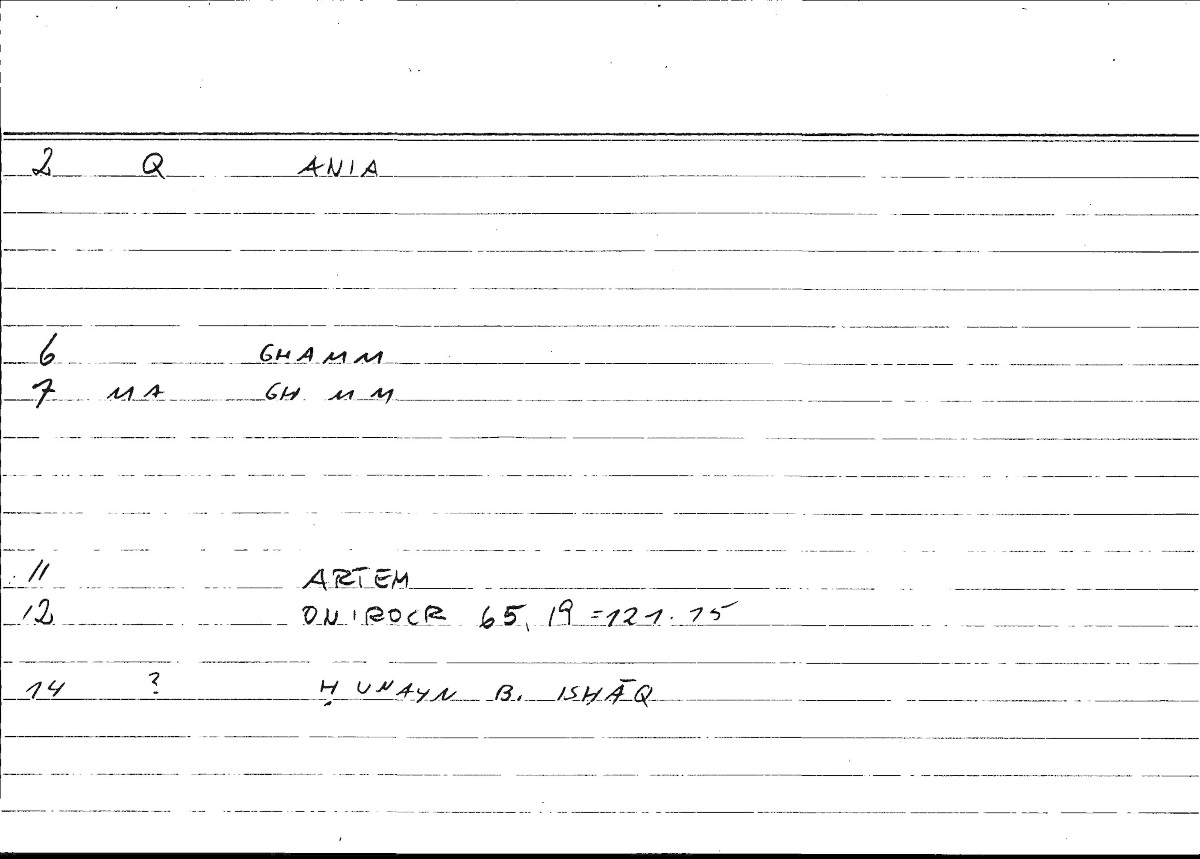 2 Q ANIA
6 GHAMM
7 MA GH MM
11 ARTEM
12 ONIROCR 65, 19 = 121.15
14 ? ḤUNAYN B. ISHĀQ